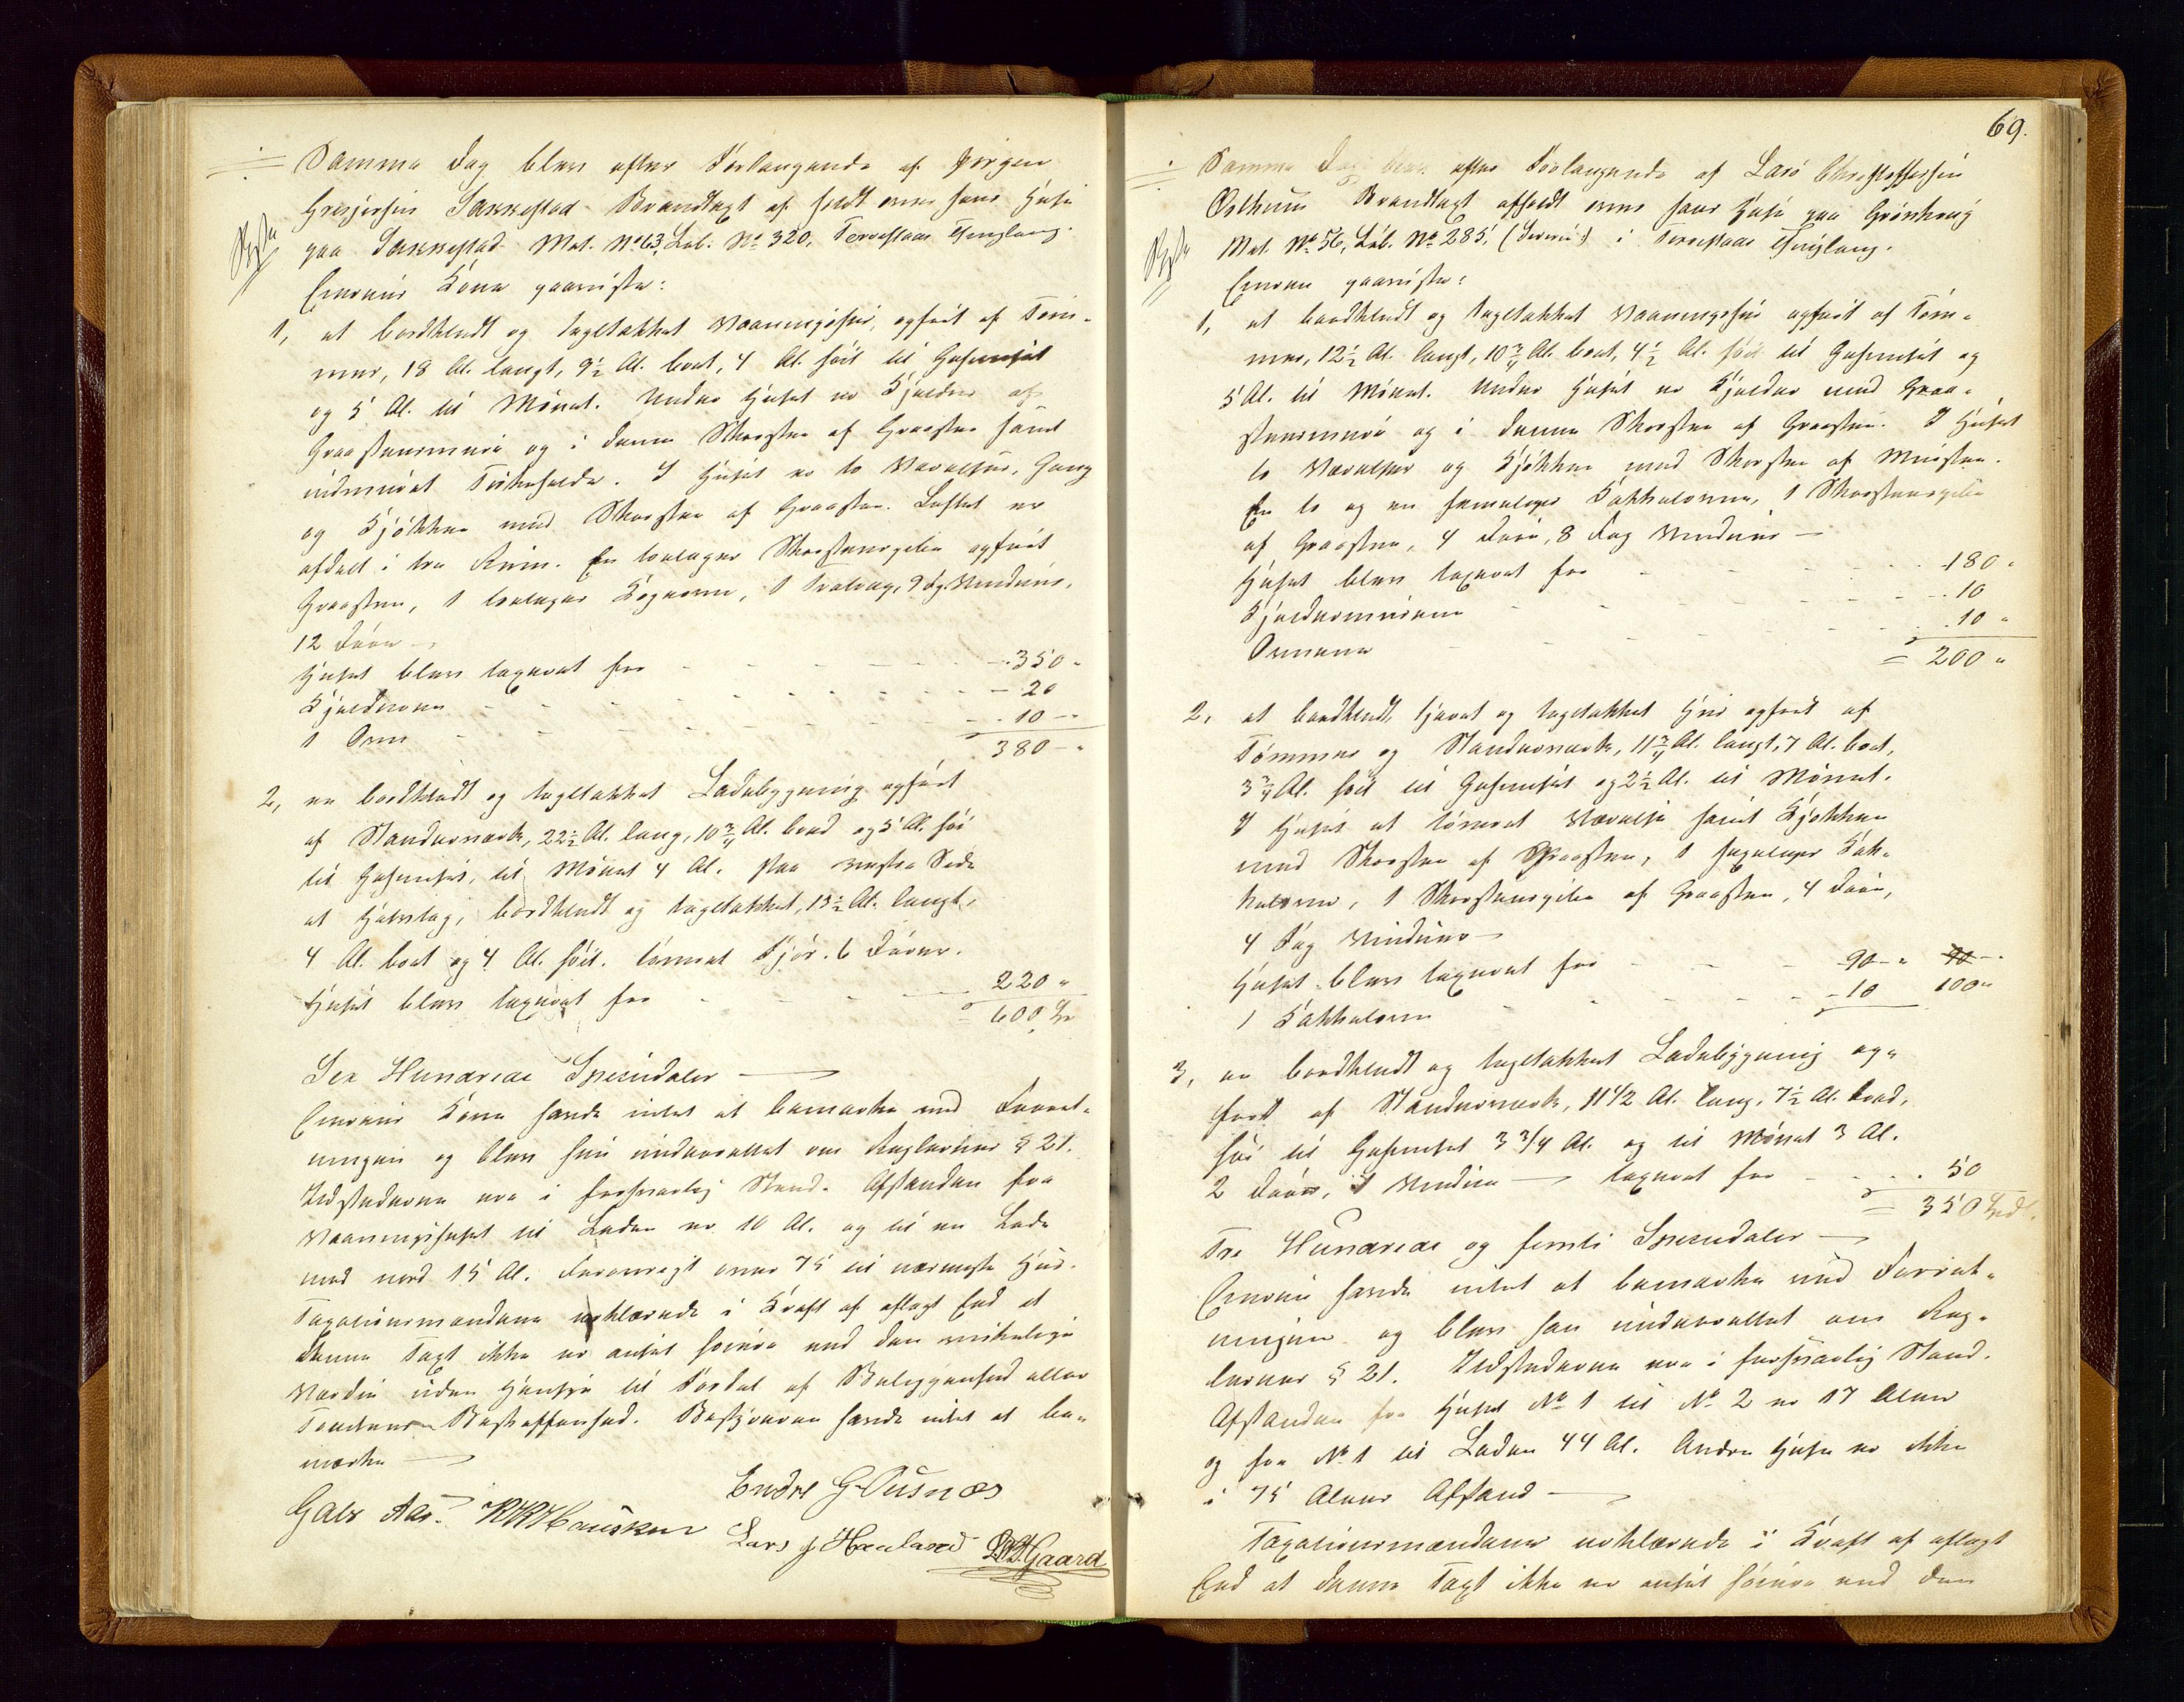 Samme Dag blev efter Forlangende af Jørgen
Grespersen Sakkestad Brandtaxt af holdt over hans Huse
paa Sakkestad Mat. No 63, Løb. No 320, Torvestads Thinglaug.
Eierens Kone paaviste:
1, et bordklædt og tagteltækket Vaaningshus, opført af Tøm-
mer, 18 Al. langt, 9½ Al. bred, 4 Al. høit til Gesimset
og 5 Al. til Mønet. Under Huset er Kjelder af
Graasteensmure og i denne Skorsten af Graasten samt
indmuret Tørkehelde. I Huset er to Værelser, Gang
og Kjøkken med Skorsten af Graasten. Loftet er
afdelt i tre Rum. En toetages Skorstenspibe opført
Graasten, 1 toetages Kogeovn, 1 , 9 Fg. Vinduer,
12 Døre –
Huset blev taxeret for - - - 350 "
Kjelderen - - - 20
1 Ovn - - - 10 "
380 "
2, en bordklædt og tagteltækket Ladebygning opført
af Standerværk, 22½ Al. lang, 10¾ Al. bred og 5 Al. høi
til Gesimset, til Mønet 4 Al. Paa vestre Side
et Halvtag, bordklædt og tagteltækket, 13½ Al. langt,
4 Al. bredt og 4 Al. høit. tømret Fjøs. 6 Døre.
Huset blev taxeret for - - - 220 "
= 600 Spd
Sex Hundrede Speciedaler
Eierens Kone havde intet at bemærke ved Forret-
ningen og blev hun underrettet om Reglernes § 21.
Ildstederne ere i forsvarlig Stand. Afstanden fra
Vaaningshuset til Laden er 10 Al. og til en Lade
mod nord 15 Al. Forøvrigt over 75 til nærmeste Hus.
Taxationsmændene erklærede i Kraft af aflagt Eed at
denne Taxt ikke er ansat høiere end den virkelige
Værdie uden Hensyn til Fordel af Beliggenhed eller
Tomtens Beskaffenhed. Bestyreren havde intet at be-
mærke
Endre G. Susnæs
Gabr Aas. KKHausken Lars J Haaland DTGaard
69.
Samme Dag blev efter Forlangende af Lars Christoffersen
Østhuus Brandtaxt afholdt over hans Huse paa Grønhoug
Mat. No 56, Løb. No 285, () i Torvestads Thinglaug.
Eieren paaviste:
1, et bordklædt og tagteltækket Vaaningshus opført af Tøm-
mer, 12½ Al. langt, 10¾ Al. bredt, 4½ Al. høit til Gesimset og
5 Al. til Mønet. Under Huset er Kjelder med Graa-
steensmure og i denne Skorsten af Graasten. I Huset
to Værelser og Kjøkken med Skorsten af Mursten.
En to og en femetages Kakkelovne, 1 Skorstenspibe
af Graasten, 4 Døre, 8 Fag Vinduer –
Huset blev taxeret for - - - 180 "
Kjeldermurene - - - 10
Ovnene - - - 10 "
= 200 "
2, et bordklædt, tjæret og tagteltækket Hus opført af
Tømmer og Standerværk, 11¾ Al. langt, 7 Al. bredt,
3¾ Al. høit til Gesimset og 2½ Al. til Mønet.
I Huset et tømret Værelse samt Kjøkken
med Skorsten af Graasten, 1 Kak-
kelovn, 1 Skorstenspibe af Graasten, 4 Døre,
4 Fag Vinduer –
Huset blev taxeret for - - - 90 " 90 -
1 Kakkelovn - - - 10 100 "
3, en bordklædt og tagteltækket Ladebygning op-
ført af Standerværk, 11 1/2 Al. lang, 7½ Al. bred,
høi til Gesimset 3 3/4 Al. og til Mønet 3 Al.
2 Døre, 1 Vindue – taxeret for - - 50
= 350 Spd.
Tre Hundrede og femti Speciedaler –
Eieren havde intet at bemærke ved Forret-
ningen og blev han underrettet om Reg-
lernes § 21. Ildstederne ere i forsvarlig Stand.
Afstanden fra Huset No 1 til No 2 er 17 Alen
og fra No 1 til Laden 44 Al. Andre Huse er ikke
i 75 Alens Afstand –
Taxationsmændene erklærede i Kraft af aflagt
Eed at denne Taxt ikke er ansat høiere end den